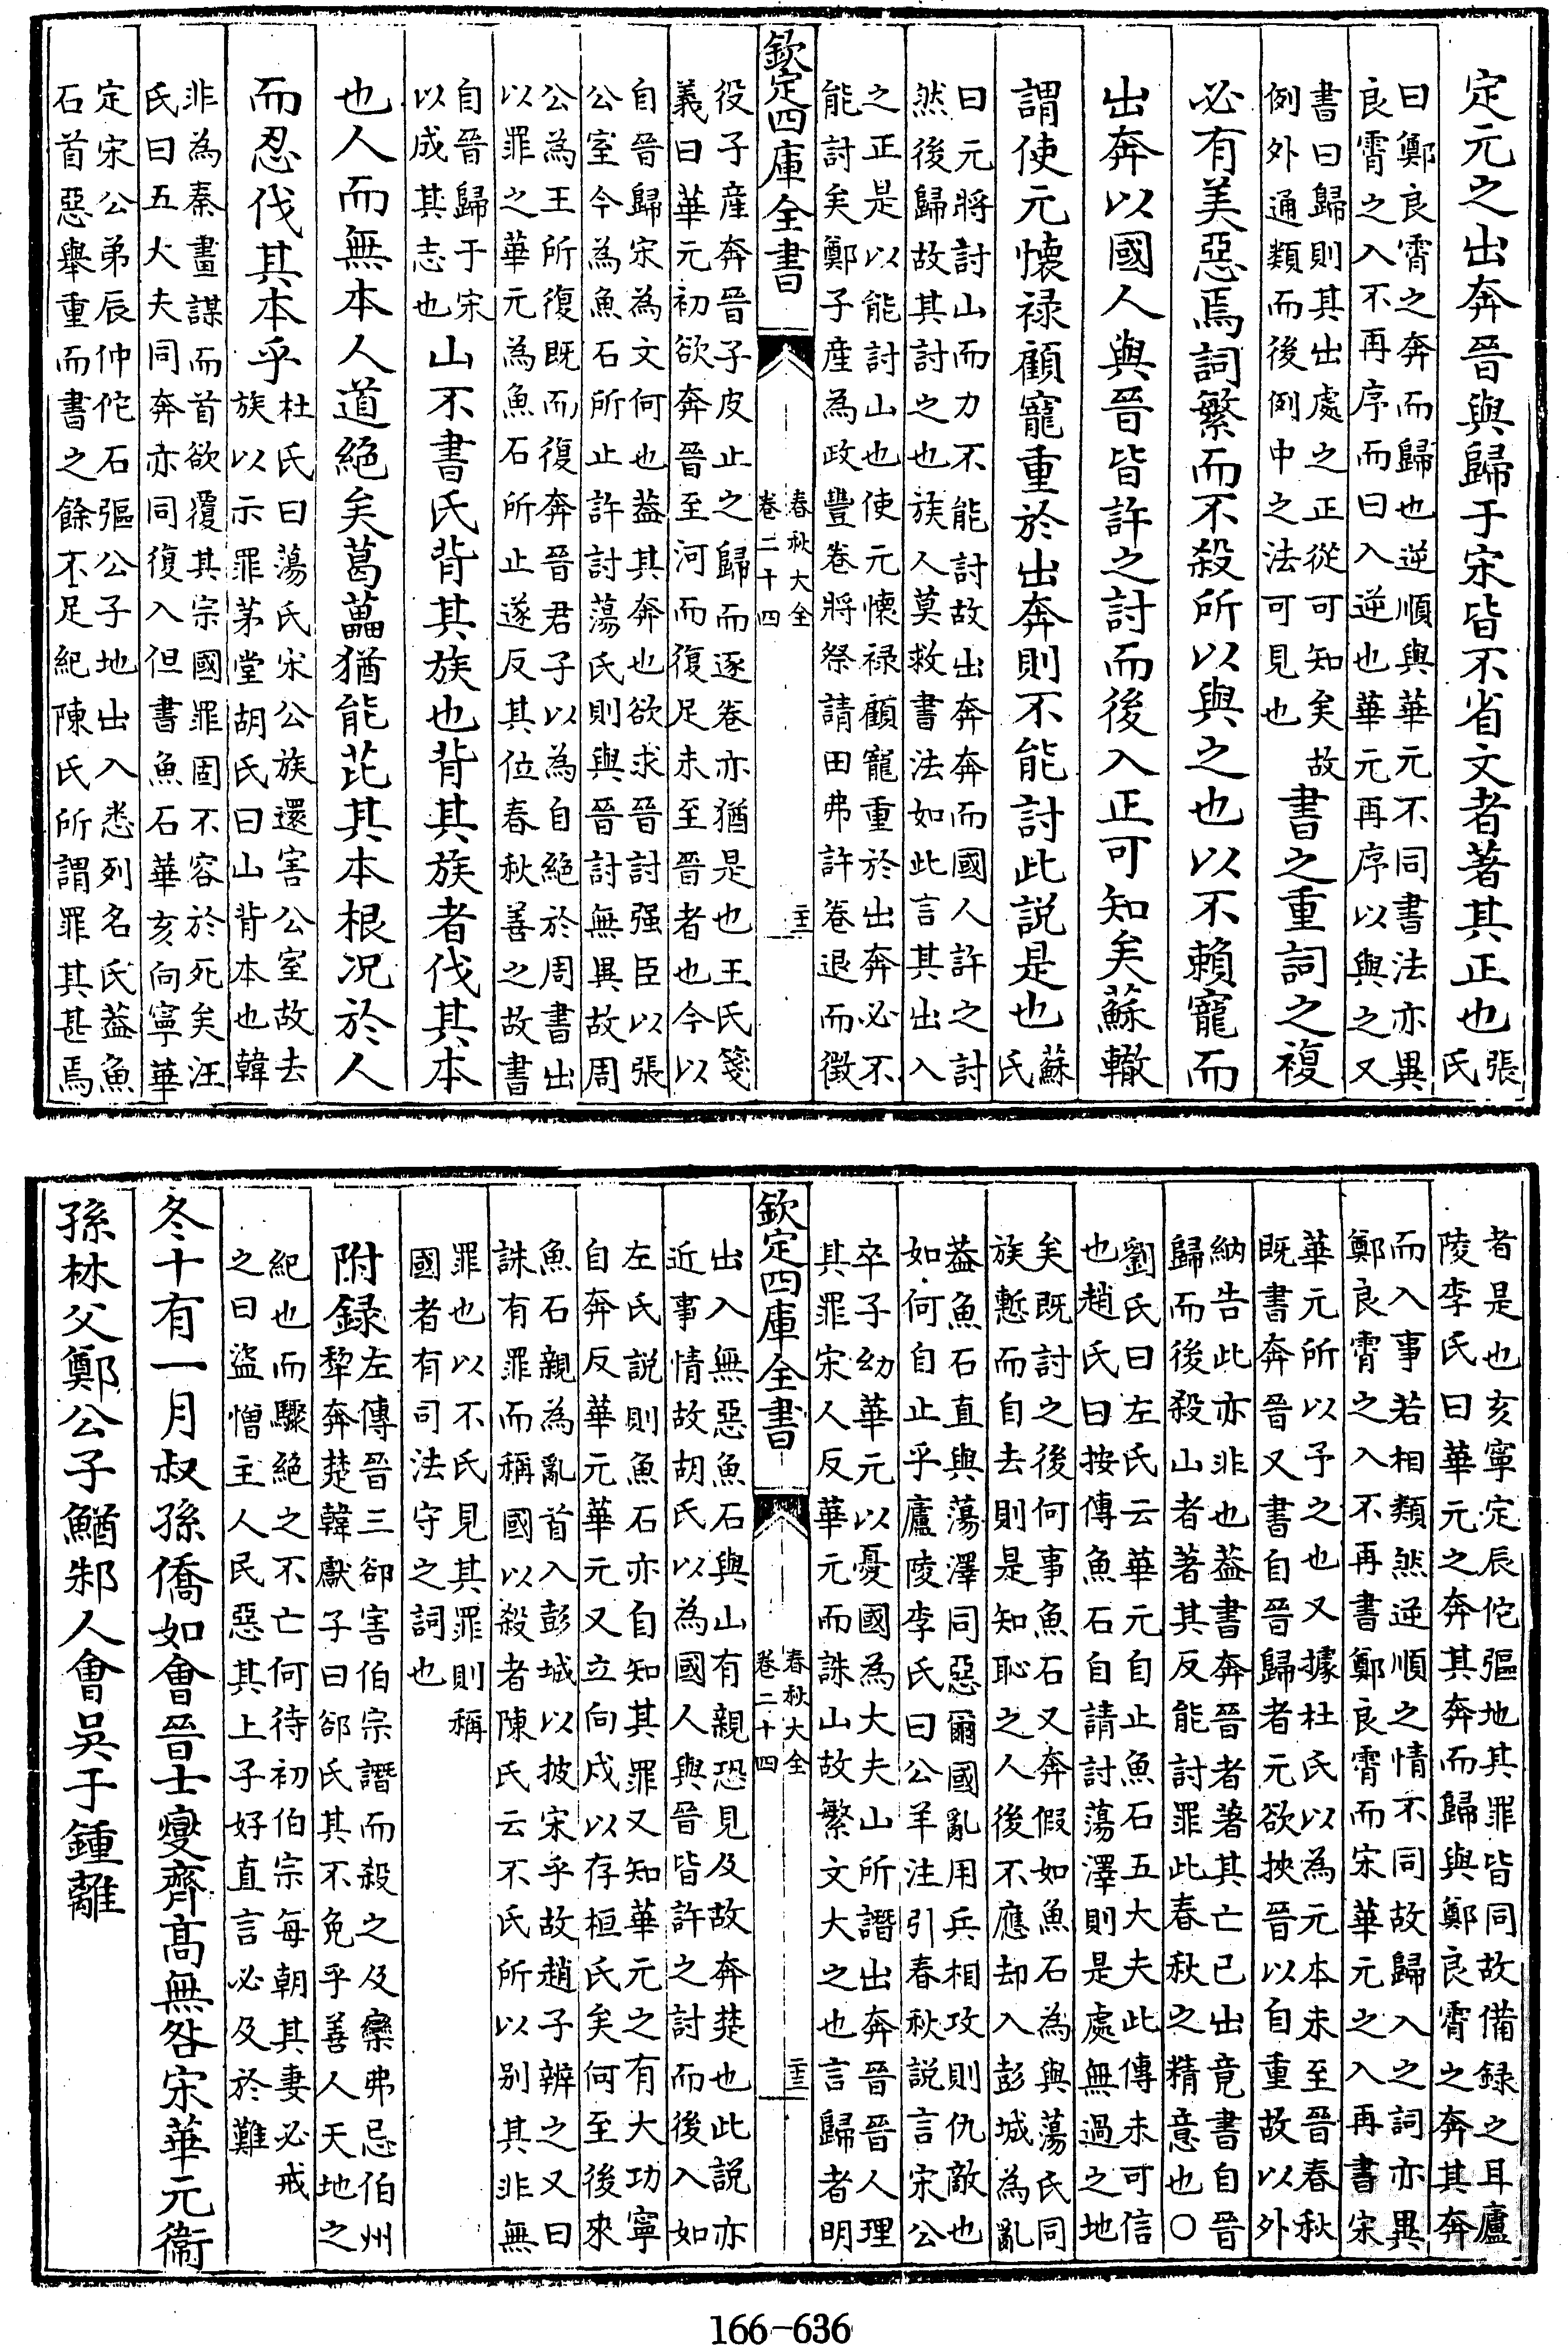 定元之出奔晉與歸于宋皆不省文者著其正也張氏
曰鄭良霄之奔而歸也逆順與華元不同書法亦異
良霄之入不再序而曰入逆也華元再序以與之又
書曰歸則其出處之正從可知矣故
例外通類而後例中之法可見也
書之重詞之複
必有美惡焉詞繁而不殺所以與之也以不賴寵而
出奔以國人與晉皆許之討而後入正可知矣蘇轍
謂使元懷祿顧寵重於出奔則不能討此說是也蘇氏
曰元將討山而力不能討故出奔奔而國人許之討
然後歸故其討之也族人莫救書法如此言其出入
之正是以能討山也使元懷祿顧寵重於出奔必不
能討矣鄭子產為政豐卷將祭請田弗許卷退而徵
欽定四庫全書
春秋大全
卷二十四
二十二
役子產奔晉子皮止之歸而逐卷亦猶是也王氏箋
義曰華元初欲奔晉至河而復足未至晉者也今以
自晉歸宋為文何也葢其奔也欲求晉討强臣以張
公室今為魚石所止許討蕩氏則與晉討無異故周
公為王所復既而復奔晉君子以為自絕於周書出
以罪之華元為魚石所止遂反其位春秋善之故書
自晉歸于宋
以成其志也
山不書氏背其族也背其族者伐其本
也人而無本人道絕矣葛藟猶能芘其本根况於人
而忍伐其本乎
杜氏曰蕩氏宋公族還害公室故去
族以示罪茅堂胡氏曰山背本也韓
非為秦畫謀而首欲覆其宗國罪固不容於死矣汪
氏曰五大夫同奔亦同復入但書魚石華亥向寧華
定宋公弟辰仲佗石彄公子地出入悉列名氏葢魚
石首惡舉重而書之餘不足紀陳氏所謂罪其甚焉
者是也亥寧定辰佗彄地其罪皆同故備録之耳廬
陵李氏曰華元之奔其奔而歸與鄭良霄之奔其奔
而入事若相類然逆順之情不同故歸入之詞亦異
鄭良霄之入不再書鄭良霄而宋華元之入再書宋
華元所以予之也又據杜氏以為元本未至晉春秋
既書奔晉又書自晉歸者元欲挾晉以自重故以外
納告此亦非也葢書奔晉者著其亡已出竟書自晉
歸而後殺山者著其反能討罪此春秋之精意也○
劉氏曰左氏云華元自止魚石五大夫此傳未可信
也趙氏曰按傳魚石自請討蕩澤則是處無過之地
矣既討之後何事魚石又奔假如魚石為與蕩氏同
族慙而自去則是知恥之人後不應却入彭城為亂
葢魚石直與蕩澤同惡爾國亂用兵相攻則仇敵也
如何自止乎廬陵李氏曰公羊注引春秋說言宋公
卒子幼華元以憂國為大夫山所譖出奔晉晉人理
其罪宋人反華元而誅山故繁文大之也言歸者明
欽定四庫全書
春秋大全
卷二十四
二十三
出入無惡魚石與山有親恐見及故奔楚也此說亦
近事情故胡氏以為國人與晉皆許之討而後入如
左氏說則魚石亦自知其罪又知華元之有大功寧
自奔反華元華元又立向戍以存桓氏矣何至後來
魚石親為亂首入彭城以披宋乎故趙子辨之又曰
誅有罪而稱國以殺者陳氏云不氏所以别其非無
罪也以不氏見其罪則稱
國者有司法守之詞也
附録左傳晉三郤害伯宗譖而殺之及欒弗忌伯州
犂奔楚韓獻子曰郤氏其不免乎善人天地之
紀也而驟絕之不亡何待初伯宗每朝其妻必戒
之曰盜憎主人民惡其上子好直言必及於難
冬十有一月叔孫僑如會晉士燮齊髙無咎宋華元衞
孫林父鄭公子鰌邾人會吳于鍾離
166-636